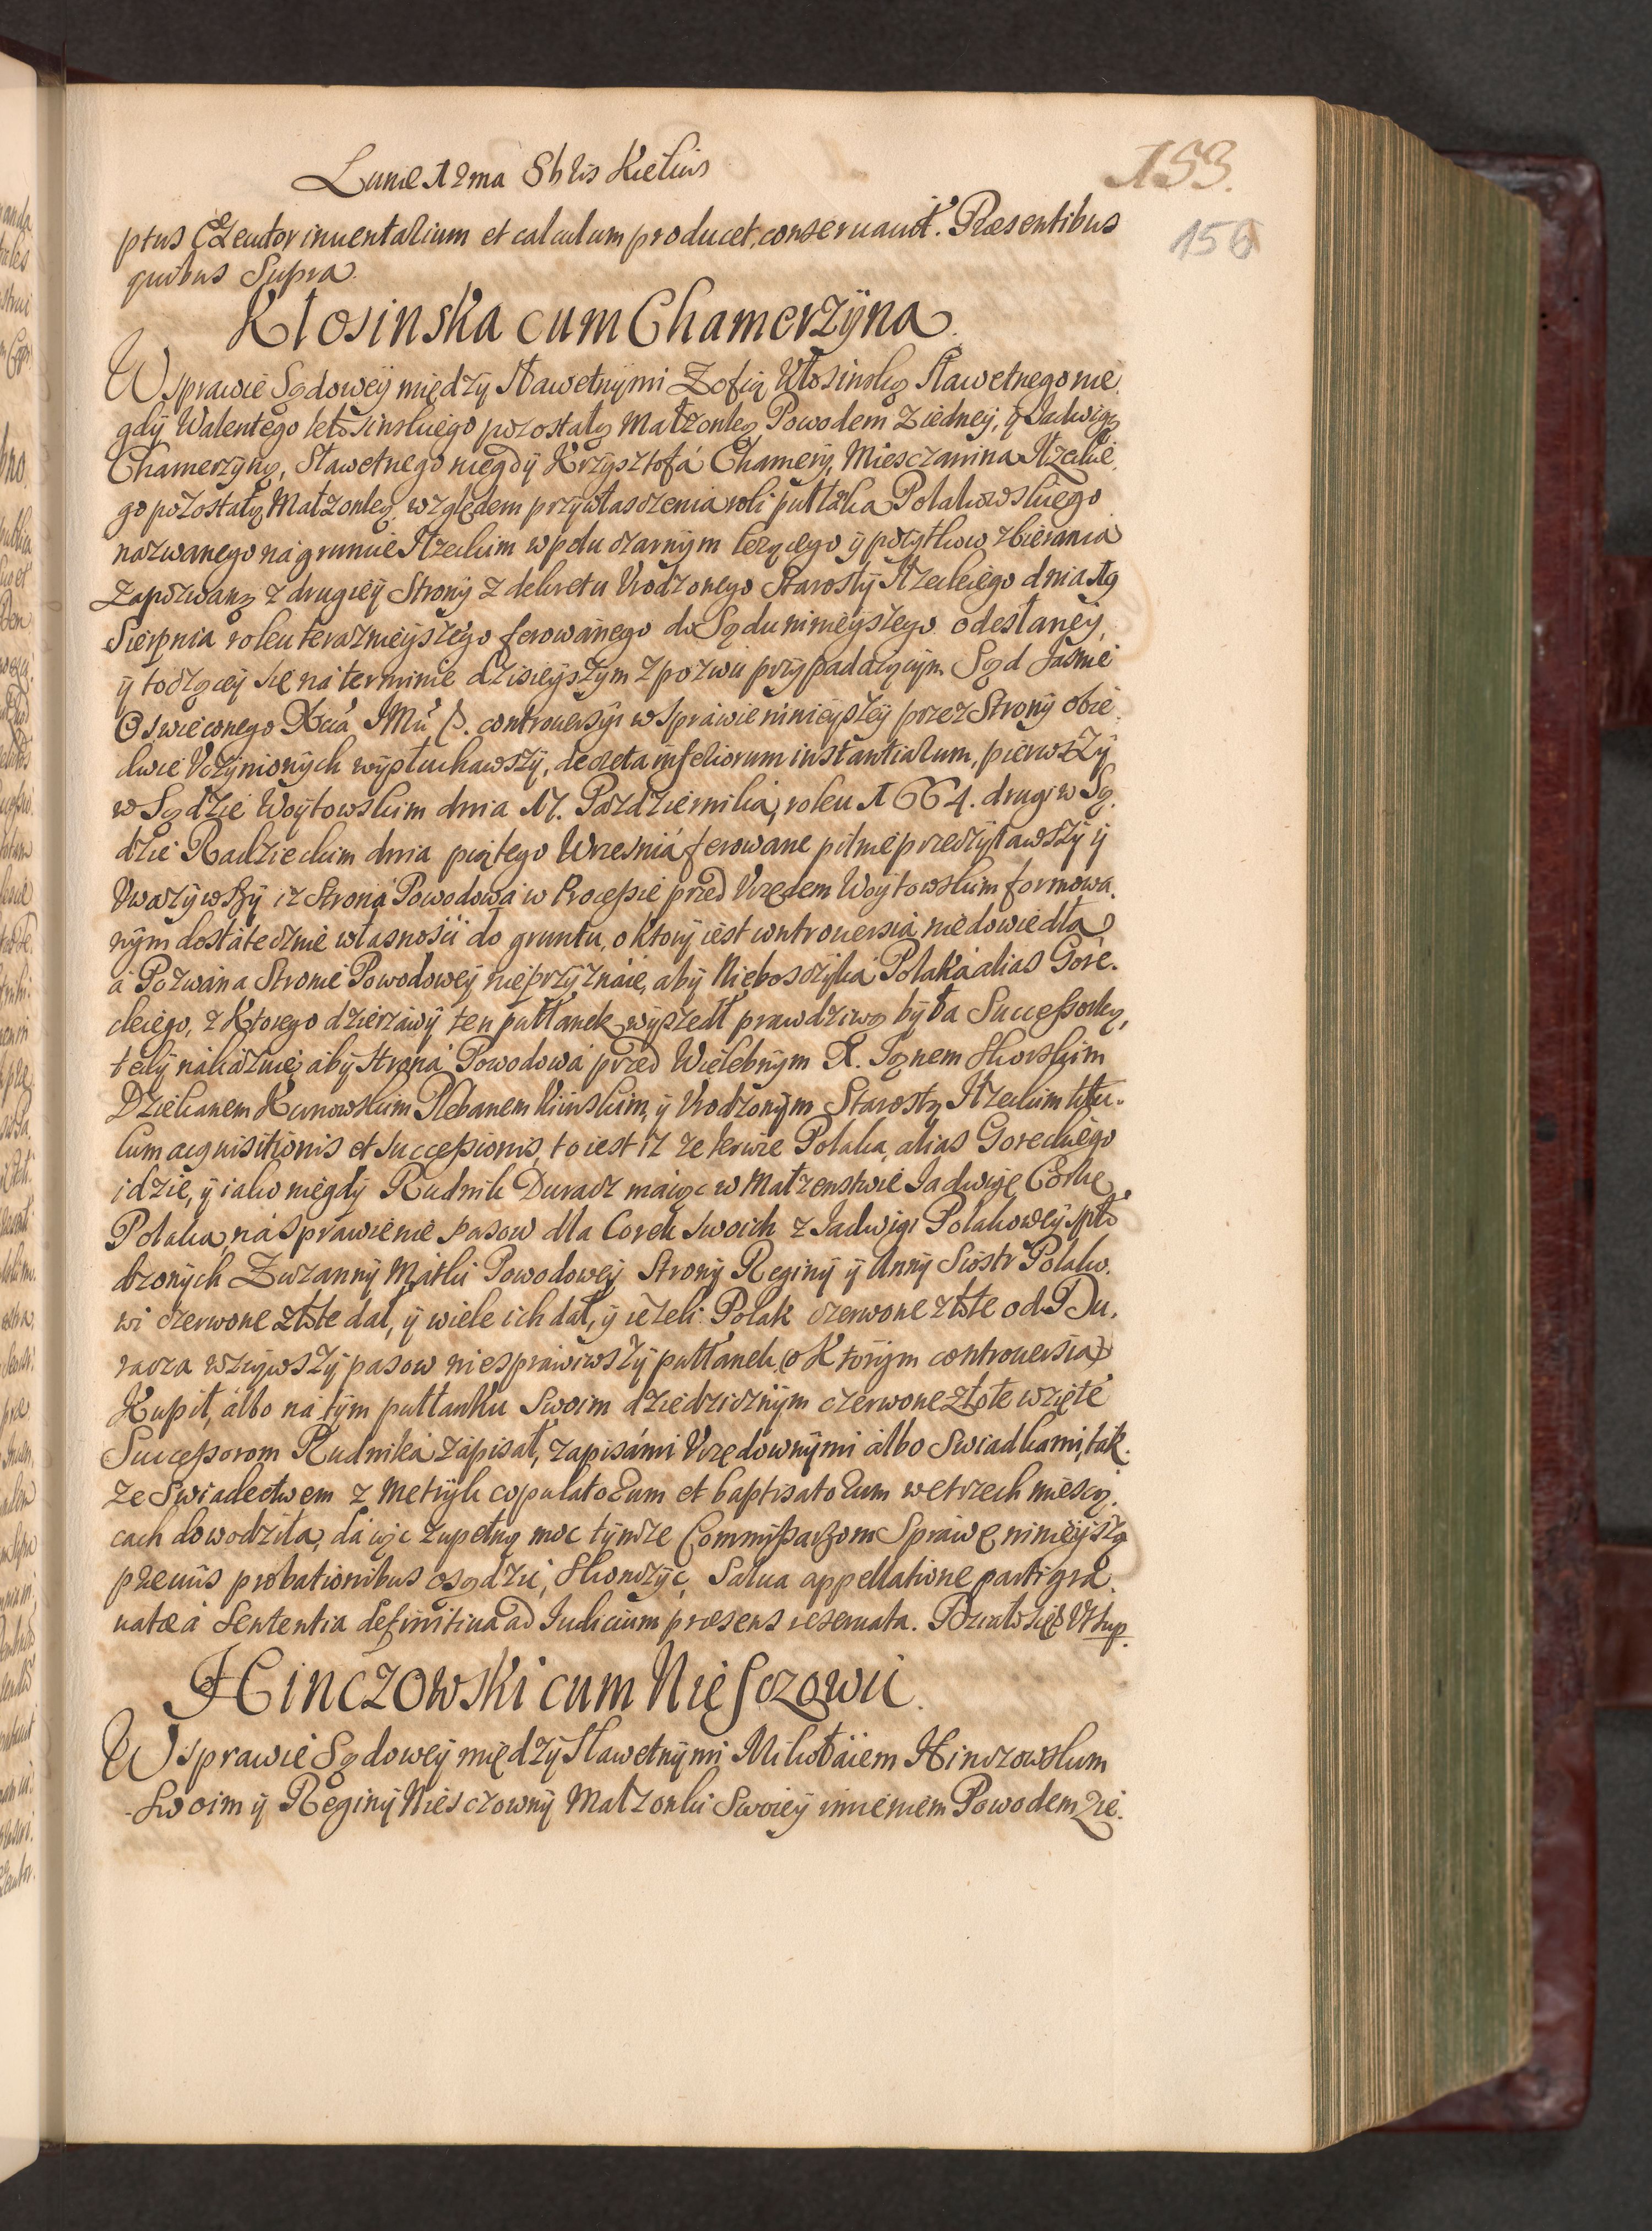 Lunæ 12ma 8bris Kielcis
153.
156
ptus Exeutor inuentarium et calculum producet, conseruauit. Præsentibus
quibus Supra.
Kłosinska cum Chamerzyna.
W sprawie Sądowey między Sławetnymi Zofią Kłosinską Sławetnego nie
gdy Walentego Kłosinskiego pozostałą Małzonką Powodem z iedney, y Jadwigą
Chamerzyną, Sławetnego niegdy Krzysztofá Chamery, Miesczanina Iłzeckie
go pozostałą Małzonką, względem przywłasczenia roli pułłáka Polakowskiego
nazwanego ná gruncie Iłzeckim w polu czarnym lezącego y pozytkow zbierania
Zapozwaną z drugiey Strony z dekretu Vrodzonego Starosty Iłzeckiego dnia 19
Sierpnia roku terazniéyszego ferowánego do Sądu ninieyszego odesłaney,
y toczącey się ná terminie dzisieyszym z pozwu przypadáiącym Sąd Jásnie
Oswieconego Xcia JMci P. controuersyi w Spráwie ninieyszey przez Strony obie
dwie Vczynionych wysłuchawszy, decreta inferiorum instantiarum, pierwszy
w Sądzie Woytowskim dnia 17. Pazdziernika, roku 1664. drugi w Są
dzie Radzieckim dnia piątego Wrzesniá ferowane pilnie przeczytawszy y
Vwazywszy iz Stroná Powodowá w Processie przed Vrzędem Woytowskim formowa
nym dostátecznie własnosci do gruntu, o ktory iest controuersia, niedowiedła
á Pozwána Stronie Powodowey nieprzyznáie, aby Nieboszczyka Poláká alias Gore.
ckiego, z Ktorego dzierzáwy ten pułłanek wyszedł prawdziwą byłá Successorką,
tedy nákázuie, aby Stroná Powodowá przed Wielebnym X. Ignem Skorskim
Dziekanem Kunowskim Plebanem Kinskim, y Vrodzonym Starostą Iłzeckim titu.
lum acquisitionis et successionis, to iest iz ze krwie Polaka, alias Goreckiego
idzie, y iako niegdy Rudnik Duracz maiąc w Małzenstwie Iadwigę Corkę
Polaka, ná spráwienie pasow dla Corek swoich z Jadwigi Polakowey spło
dzonych Zuzanny Mátki Powodowey Strony Reginy y Anny Siostr Polako.
wi czerwone złote dał, y wiele ich dał, y iezeli Polak czerwone złote od Du,
racza wziąwszy pasow niespráwiwszy pułłanek (o Ktorym controuersia)
Kupił, álbo ná tym pułłanku swoim dziedzicznym czerwone złote wzięte
Successorom Rudniká zápisał, zapisámi Vrzędownymi álbo Swiadkami, ták.
ze Swiadectwem z Metryk copulatorum et baptisatorum we trzech miesią.
cach dowodziła, dáiąc zupełną moc tymze Commissarzom Spráwę ninieyszą
præuiis probationibus osądzić, Skonczyć, Salua appellatione parti gra.
uatæ á Sententia definitiua ad Iudicium præsens reseruata. Działo się Vt sup.
Hinczowski cum Niesczowic.
W sprawie Sądowey między Sławetnymi Mikołáiem Hinczowskim
Swoim y Reginy Niesczowny Małzonki Swoiey imieniem Powodem z ie.